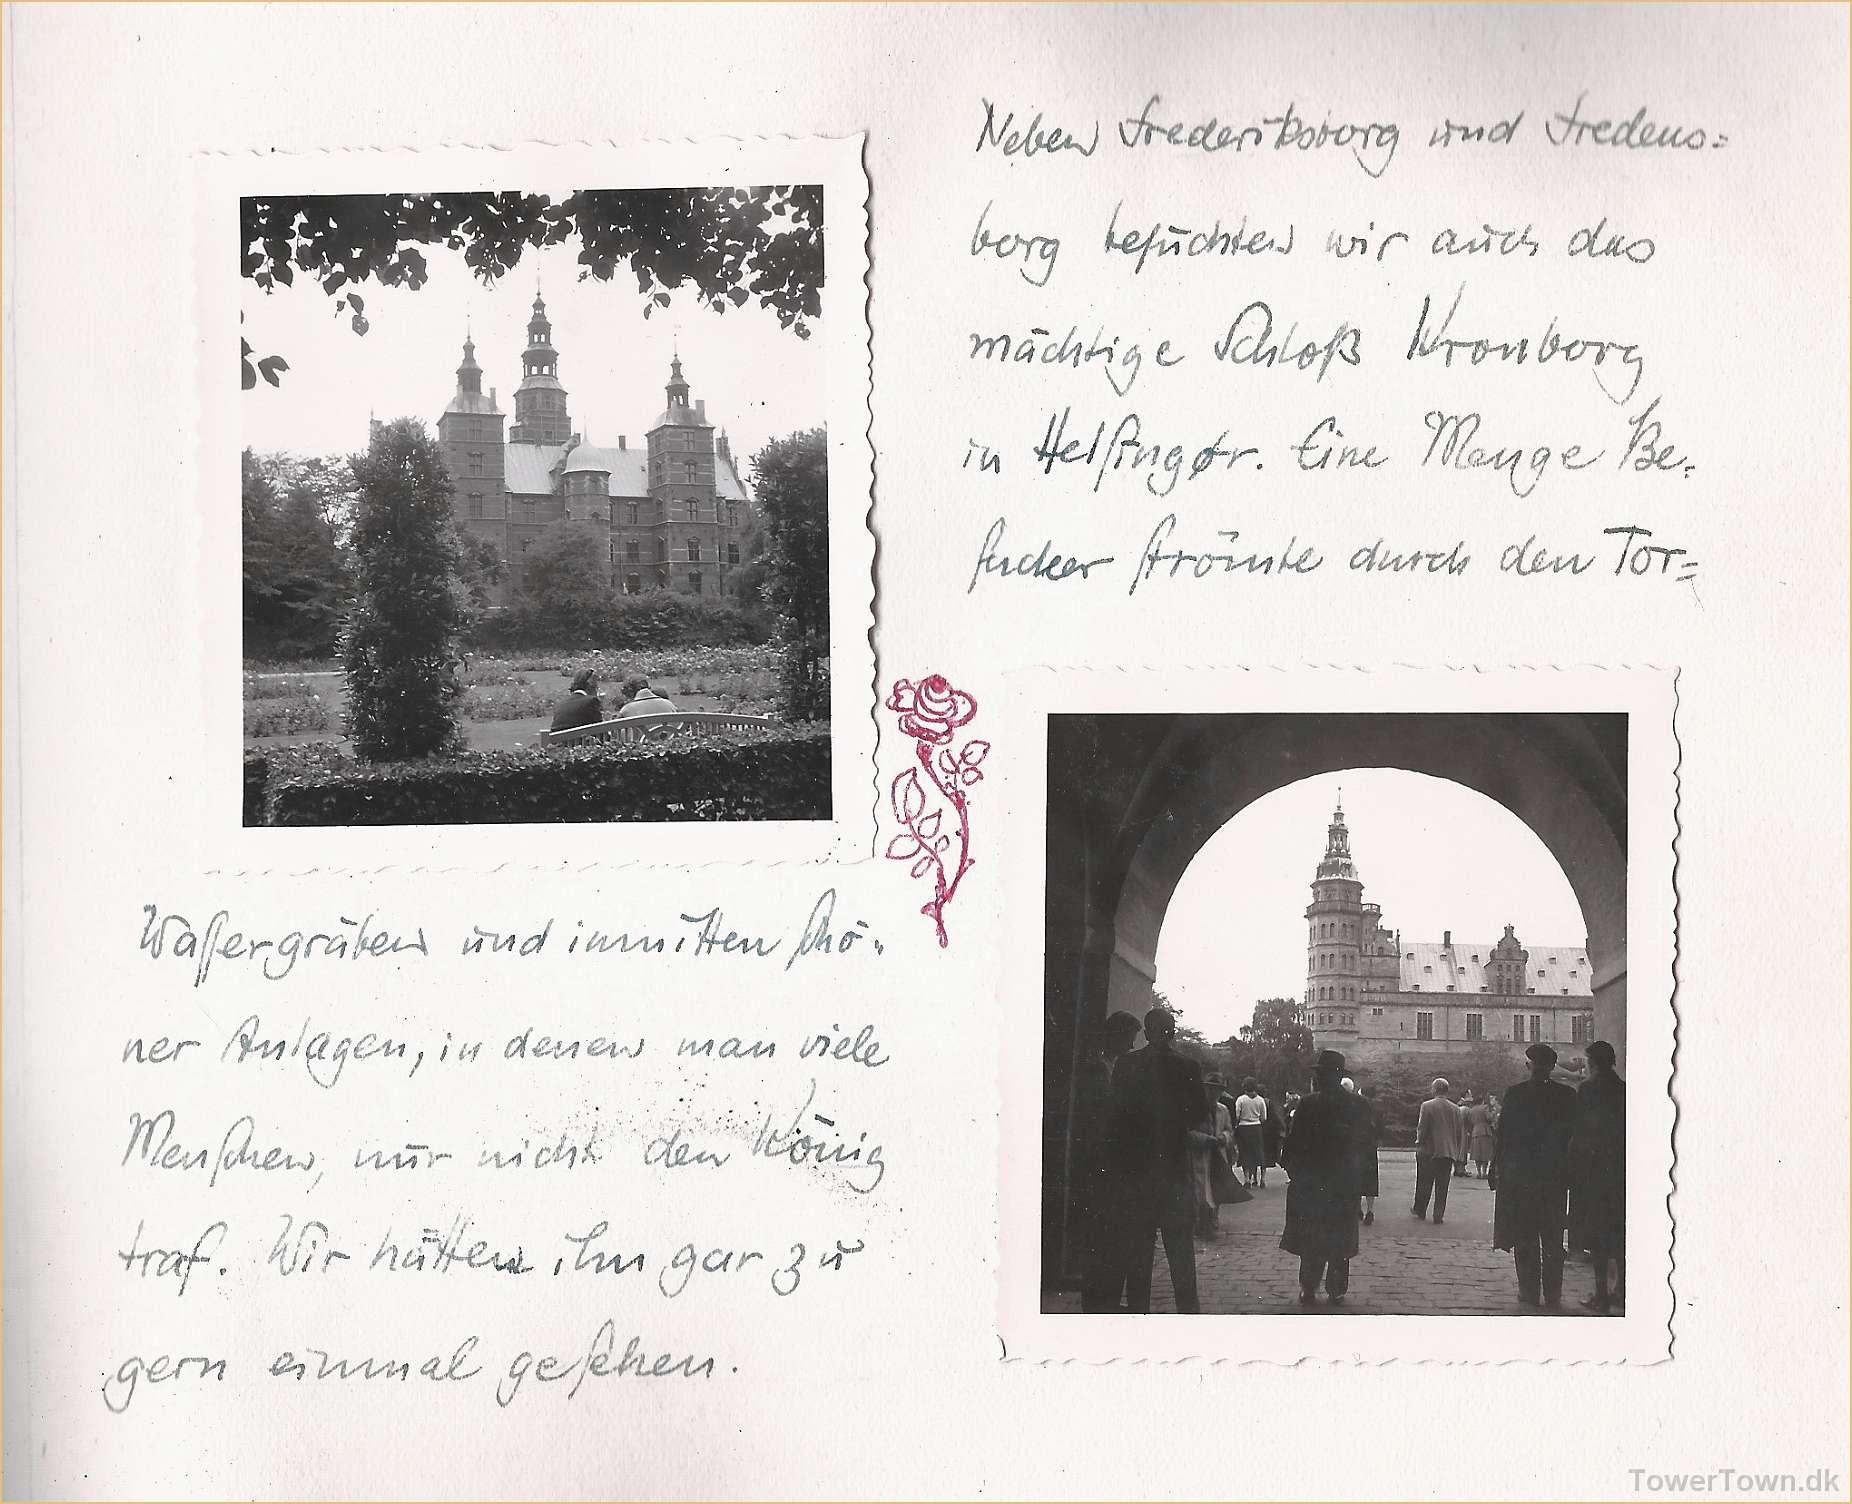 Wassergräben und inmitten schö-
ner Anlagen, in denen man viele
Menschen, nur nicht den König
traf. Wir hätten ihn gar zu
gern einmal gesehen.
Neben Frederiksborg und Fredens=
borg besuchten wir auch das
mächtige Schloß Kronborg
in Helsingør. Eine Menge Be=
sucher strömte durch den Tor=
TowerTown.dk